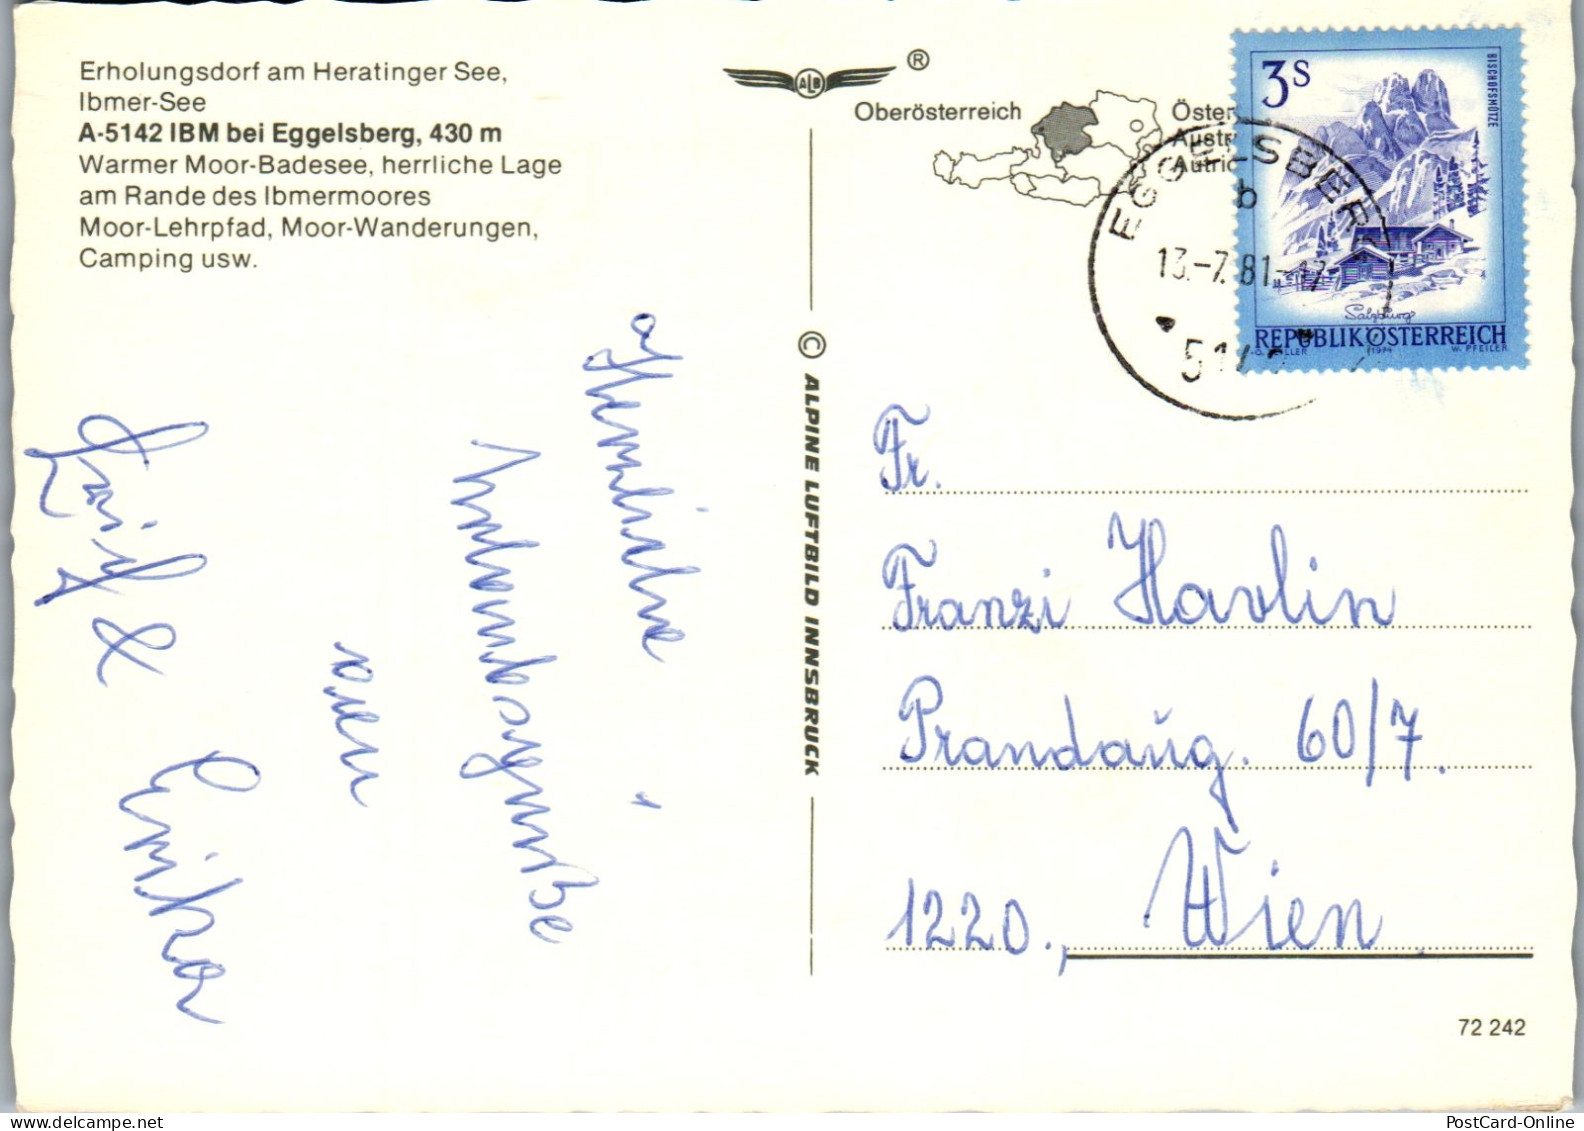 Erholungsdorf am Heratinger See,
Ibmer-See
A-5142 IBM bei Eggelsberg, 430 m
Warmer Moor-Badesee, herrliche Lage
am Rande des Ibmermoores
Moor-Lehrpfad, Moor-Wanderungen,
Camping usw.
ALB
®
Oberösterreich
Öster
Austr
Autric
EGGELSBERG
b
13.-7.81-17
3S
BISCHOFSMÜTZE
Salzburg
REPUBLIK ÖSTERREICH
1974
W. PFEILER
© ALPINE LUFTBILD INNSBRUCK
Herzliche
Urlaubsgrüße
von
&
Erika
Fr.
Franzi Havlin
Prandaug. 60/7.
1220., Wien
72 242
PostCard-Online